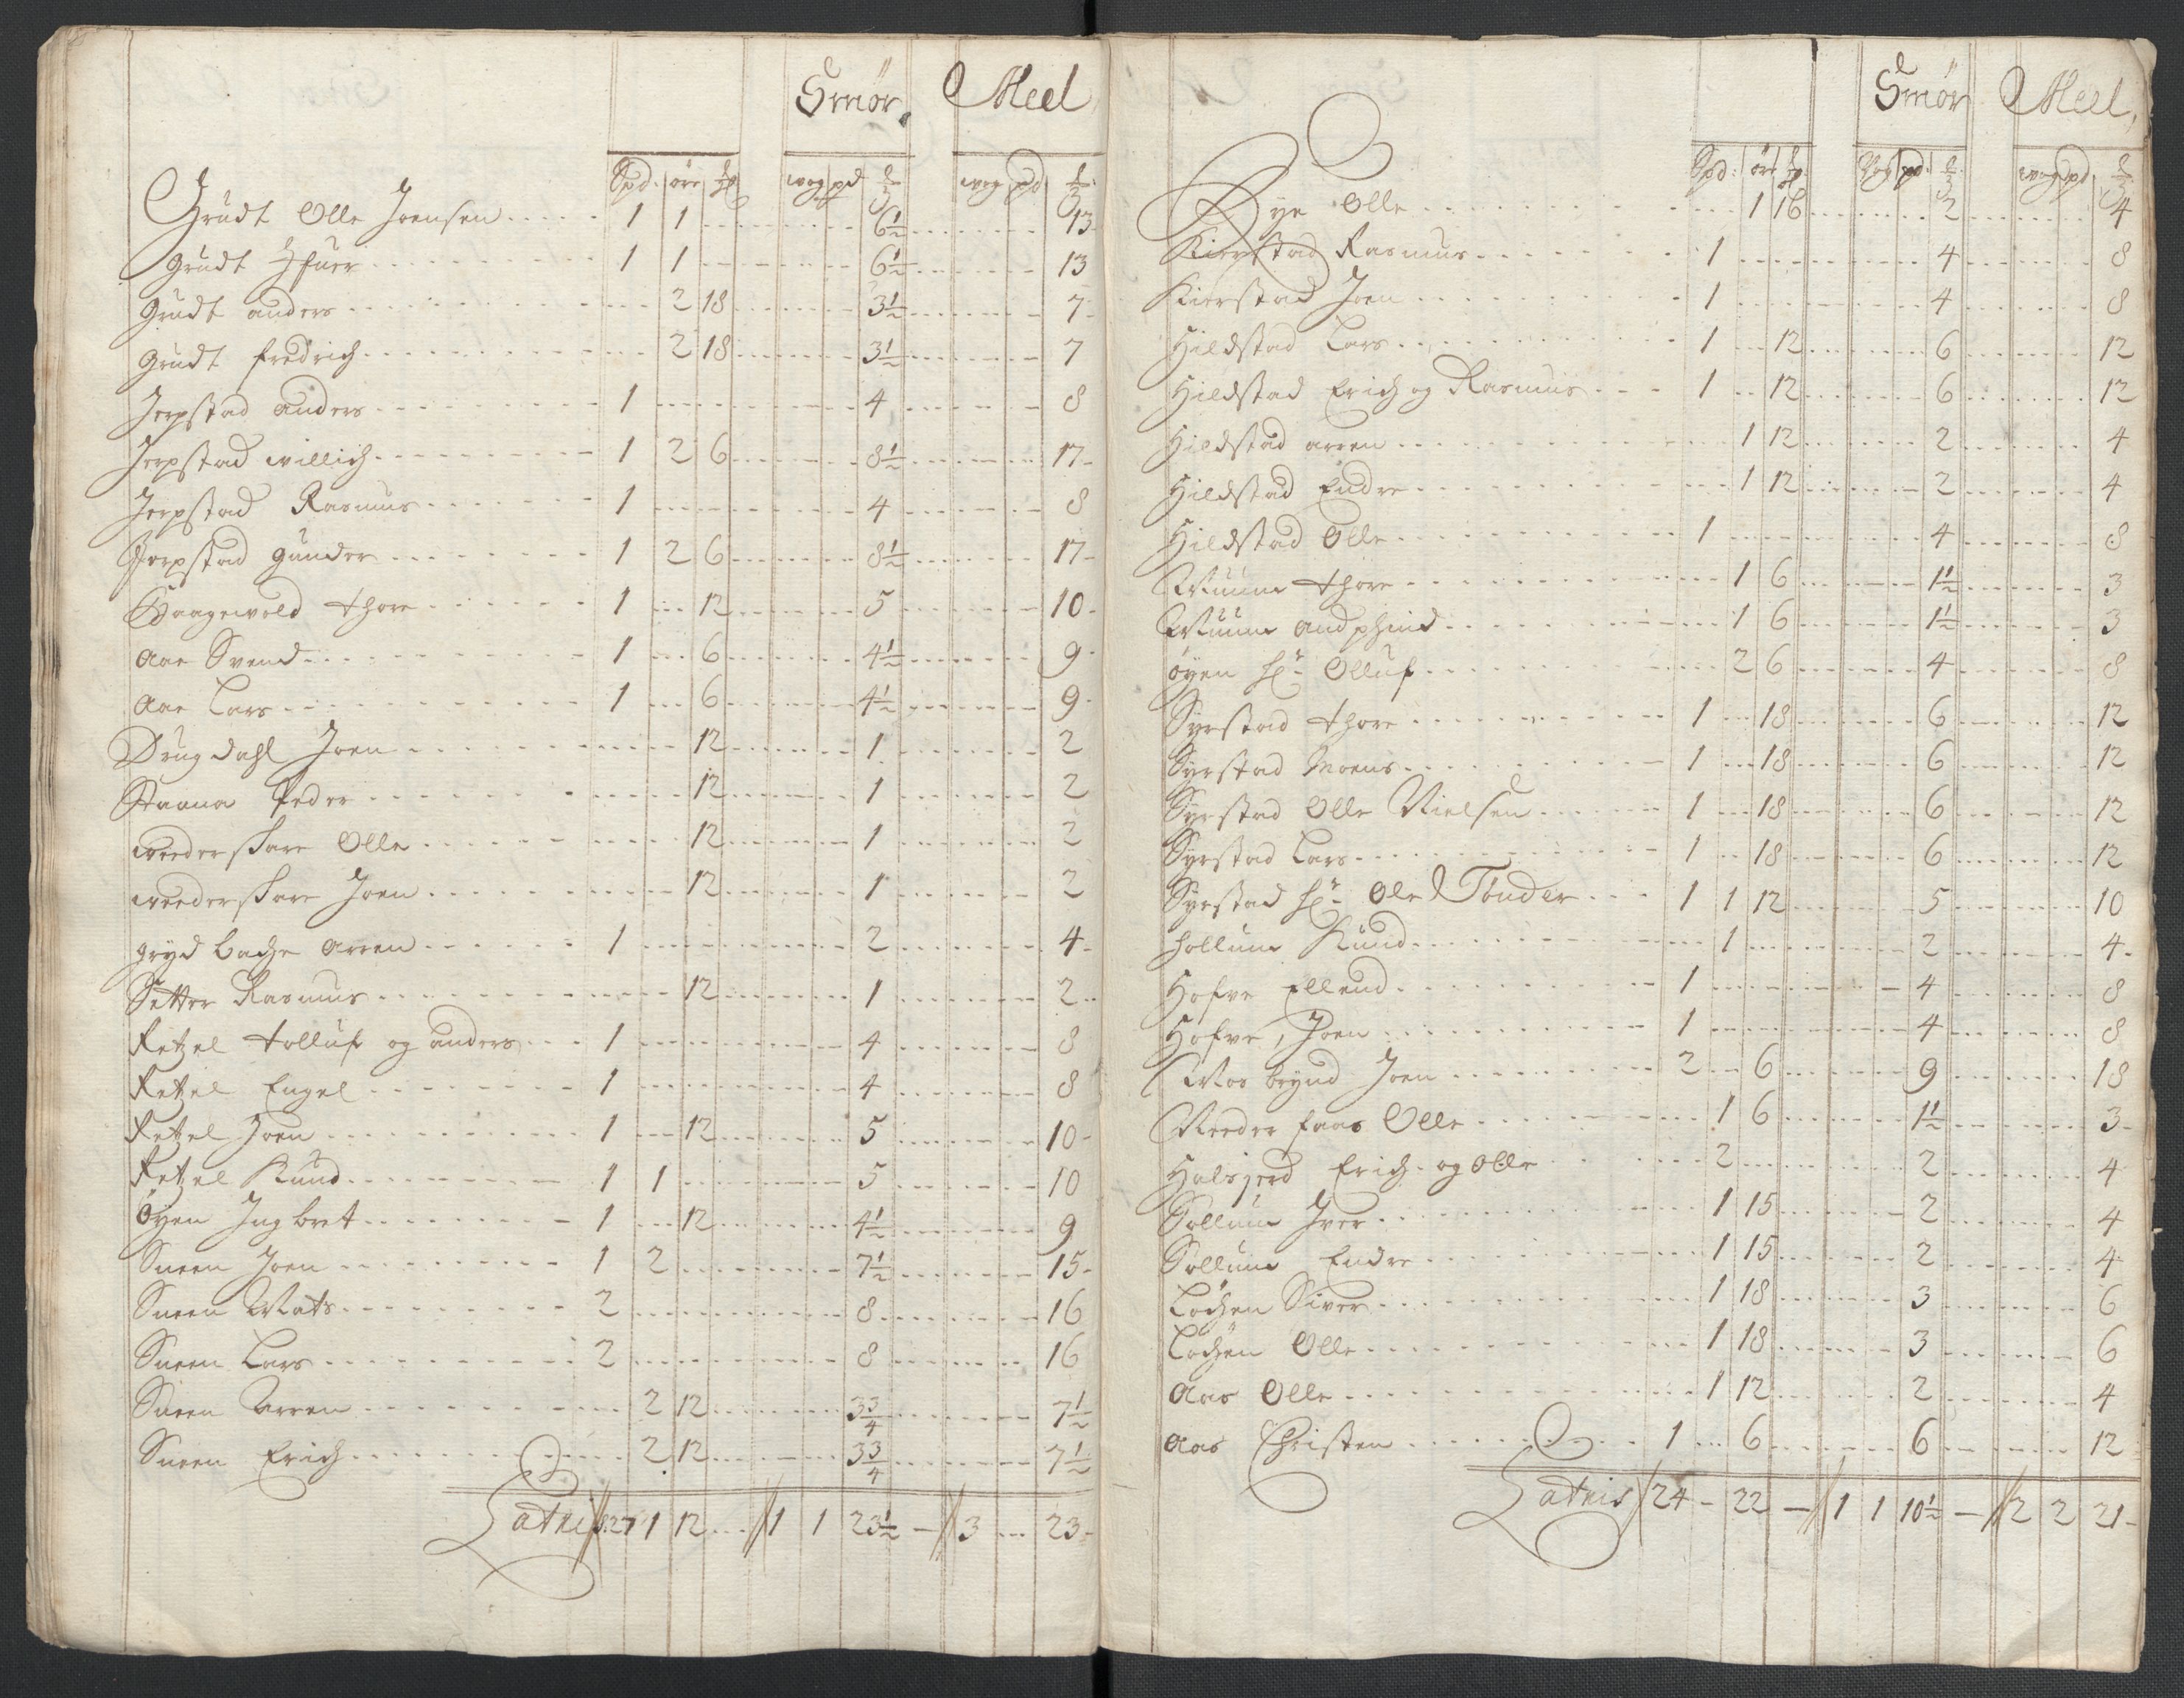 Smør. Meel
Spd. øre wog pd wog pd
Grudt Olle Joensen 1 1 6½ 13
Grudt Ifuer 1 1 6½ 13
Grudt anders 2 18 3½ 7
Grudt fredrich 2 18 3½ 7
Jerpstad anders 1 4 8
Jerpstad willich 1 2 6 8½ 17
Jerpstad Rasmus 1 4 8
Jerpstad gunder 1 2 6 8½ 17
Haagewold thore 1 12 5 10
Aae Svend 1 6 4½ 9
Aae Lars 1 6 4½ 9
Drugdahl Joen 12 1 2
Staana Peder 12 1 2
wederskare Olle 12 1 2
wederskare Joen 12 1 2
gryd bache Arren 1 2 4
Setter Rasmus 12 1 2
Retzel tolluf og anders 1 4 8
Retzel Engel 1 4 8
Retzel Joen 1 12 5 10
Retzel Knud 1 1 5 10
Øyen Ingbret 1 12 4½ 9
Sneen Joen 1 2 7½ 15
Sneen Mats 2 8 16
Sneen Lars 2 8 16
Sneen Arren 2 12 3¾ 7½
Sneen Erich 2 12 3¾ 7½
Latris 27 1 12 1 1 23½ 3 23
Smør Meel
Spd. øre Wog pd. wog pd
Rye Olle 1 16 2 4
Kierstad Rasmus 1 4 8
Kierstad Joen 1 4 8
Hildstad Lars 1 12 6 12
Hildstad Erich og Rasmus 1 12 6 12
Hildstad arren 1 12 2 4
Hildstad Endre 1 12 2 4
Hildstad Olle 1 4 8
Muune thore 1 6 1½ 3
Muune andphind 1 6 1½ 3
øyen hr Olluf 2 6 4 8
Syrstad thore 1 18 6 12
Syrstad Moens 1 18 6 12
Syrstad Olle Nielsen 1 18 6 12
Syrstad Lars 1 18 6 12
Syrstad hr Ole Tønder 1 1 12 5 10
hollum Knud 1 2 4
Hofve Ellend 1 4 8
Hofve, Joen 1 4 8
Mosbrynd Joen 2 6 9 18
Reeder faas Olle 1 6 1½ 3
Halsjerd Erich og Olle 2 2 4
Sollum Iver 1 15 2 4
Sollum Endre 1 15 2 4
Lochen Siver 1 18 3 6
Lochen Olle 1 18 3 6
Aas Olle 1 12 2 4
Aas Christen 1 6 6 12
Latris 24 - 22 1 1 10½ 2 2 21